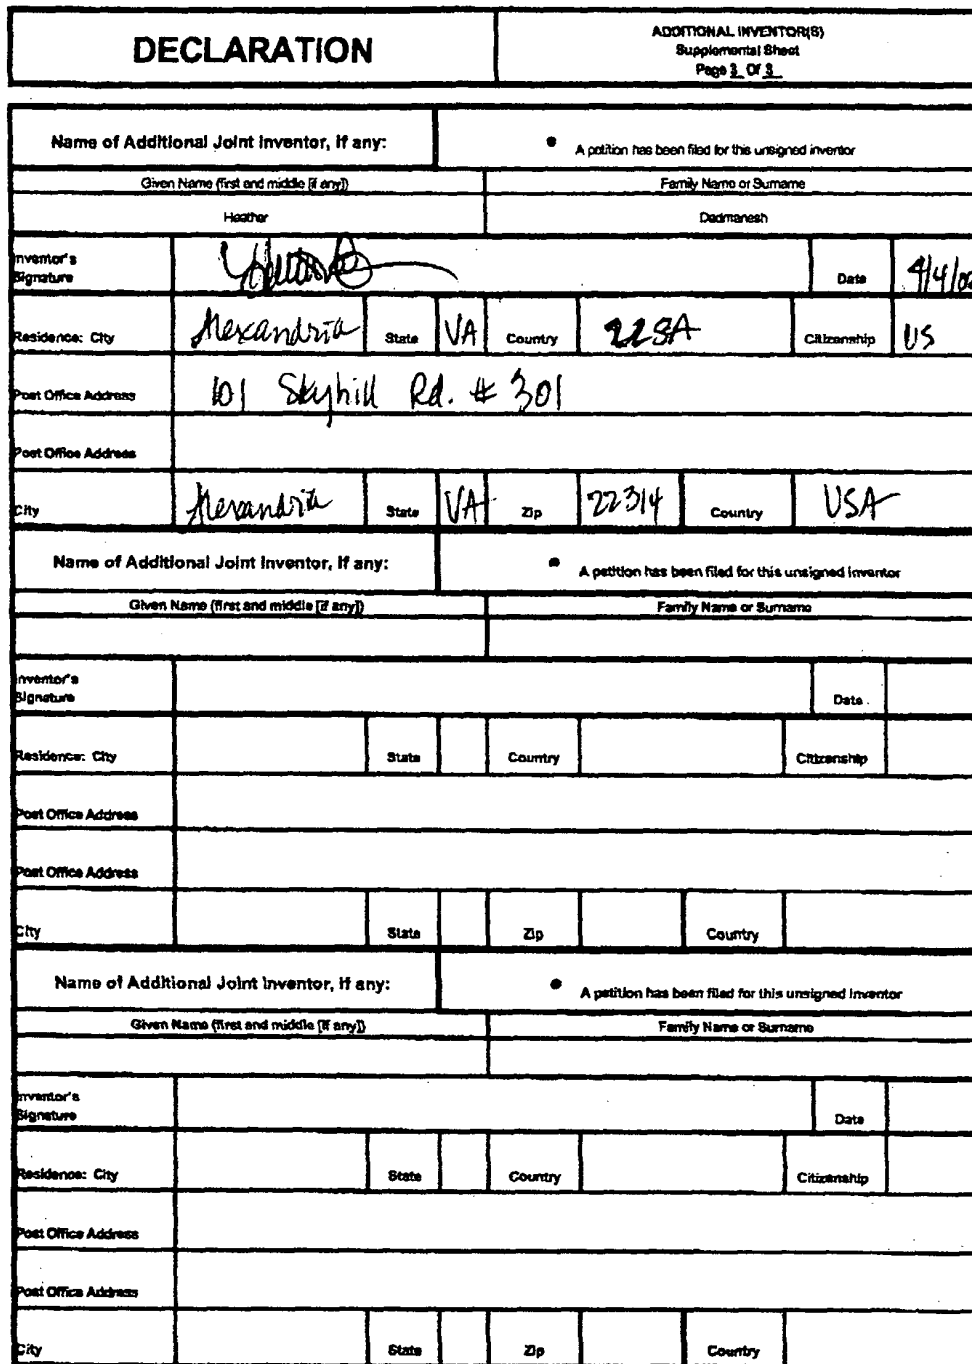 DECLARATION
ADDITIONAL INVENTOR(S)
Supplemental Sheet
Page 3 Of 3
Name of Additional Joint Inventor, if any:
• A petition has been filed for this unsigned inventor
Given Name (first and middle [if any]) Family Name or Surname
Heather Dadmanesh
Inventor's Signature Date 4/4/02
Residence: City Alexandria State VA Country USA Citizenship US
Post Office Address 101 Skyhill Rd. # 301
Post Office Address
City Alexandria State VA Zip 22314 Country USA
Name of Additional Joint Inventor, if any:
• A petition has been filed for this unsigned inventor
Given Name (first and middle [if any]) Family Name or Surname
Inventor's Signature Date
Residence: City State Country Citizenship
Post Office Address
Post Office Address
City State Zip Country
Name of Additional Joint Inventor, if any:
• A petition has been filed for this unsigned inventor
Given Name (first and middle [if any]) Family Name or Surname
Inventor's Signature Date
Residence: City State Country Citizenship
Post Office Address
Post Office Address
City State Zip Country